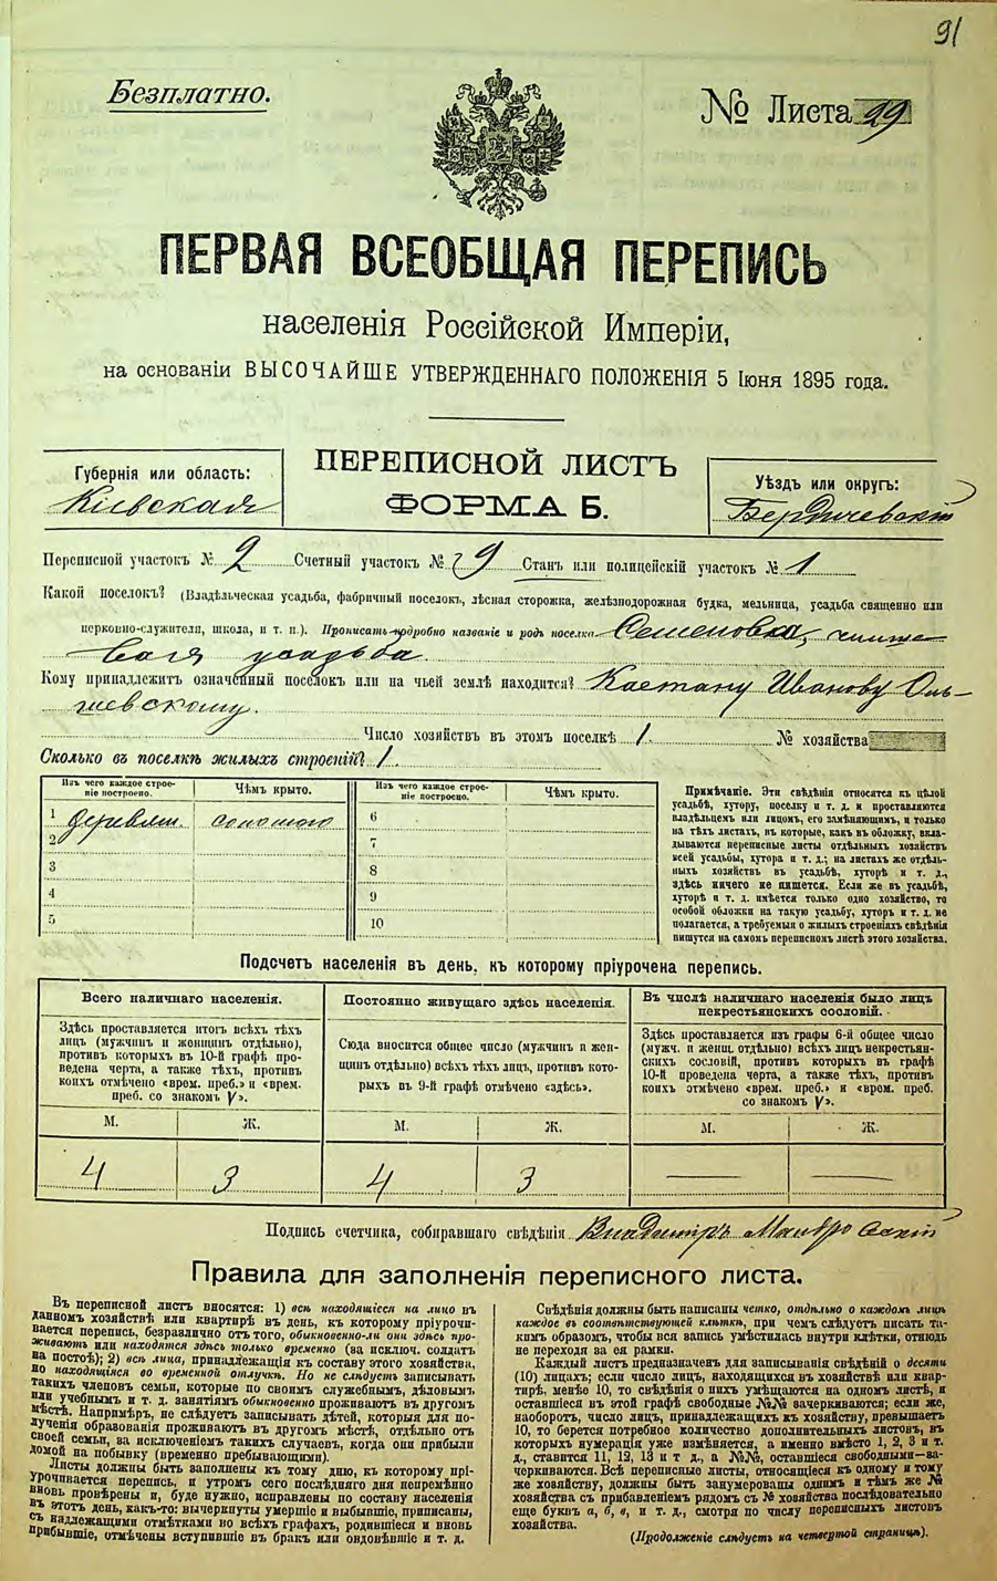 91
Безплатно.
№ Листа 29
ПЕРВАЯ ВСЕОБЩАЯ ПЕРЕПИСЬ
населенія Россійской Имперіи,
на основаніи ВЫСОЧАЙШЕ УТВЕРЖДЕННАГО ПОЛОЖЕНІЯ 5 Іюня 1895 года.
Губернія или область:
Кіевская
ПЕРЕПИСНОЙ ЛИСТЪ
ФОРМА Б.
Уѣздъ или округъ:
Бердичевскій
Переписной участокъ № 2 Счетный участокъ № 29 Станъ или полицейскій участокъ № 1
Какой поселокъ? (Владѣльческая усадьба, фабричный поселокъ, лѣсная сторожка, желѣзнодорожная будка, мельница, усадьба священно или
церковно-служителя, школа, и т. п.). Прописать подробно названіе и родъ поселка Семеновка, чинше-
вая усадьба.
Кому принадлежитъ означенный поселокъ или на чьей землѣ находится? Каетану Иванову Оль-
шевскому.
Число хозяйствъ въ этомъ поселкѣ 1. № хозяйства
Сколько въ поселкѣ жилыхъ строеній? 1.
Изъ чего каждое строе-
ніе построено.
Чѣмъ крыто.
Изъ чего каждое строе-
ніе построено.
Чѣмъ крыто.
1 деревян. соломою
2
3
4
5
6
7
8
9
10
Примѣчаніе. Эти свѣдѣнія относятся къ цѣлой
усадьбѣ, хутору, поселку и т. д. и проставляются
владѣльцемъ или лицомъ, его замѣняющимъ, и только
на тѣхъ листахъ, въ которые, какъ въ обложку, вкла-
дываются переписные листы отдѣльныхъ хозяйствъ
всей усадьбы, хутора и т. д.; на листахъ же отдѣль-
ныхъ хозяйствъ въ усадьбѣ, хуторѣ и т. д.,
здѣсь ничего не пишется. Если же въ усадьбѣ,
хуторѣ и т. д. имѣется только одно хозяйство, то
особой обложки на такую усадьбу, хуторъ и т. д. не
полагается, а требуемыя о жилыхъ строеніяхъ свѣдѣнія
пишутся на самомъ переписномъ листѣ этого хозяйства.
Подсчетъ населенія въ день, къ которому пріурочена перепись.
Всего наличнаго населенія.
Здѣсь проставляется итогъ всѣхъ тѣхъ
лицъ (мужчинъ и женщинъ отдѣльно),
противъ которыхъ въ 10-й графѣ про-
ведена черта, а также тѣхъ, противъ
коихъ отмѣчено «врем. преб.» и «врем.
преб. со знакомъ V».
Постоянно живущаго здѣсь населенія.
Сюда вносится общее число (мужчинъ и жен-
щинъ отдѣльно) всѣхъ тѣхъ лицъ, противъ кото-
рыхъ въ 9-й графѣ отмѣчено «здѣсь».
Въ числѣ наличнаго населенія было лицъ
некрестьянскихъ сословій.
Здѣсь проставляется изъ графы 6-й общее число
(мужч. и женщ. отдѣльно) всѣхъ лицъ некрестьян-
скихъ сословій, противъ которыхъ въ графѣ
10-й проведена черта, а также тѣхъ, противъ
коихъ отмѣчено «врем. преб.» и «врем. преб.
со знакомъ V».
М. Ж. М. Ж. М. Ж.
4 3 4 3 — —
Подпись счетчика, собиравшаго свѣдѣнія Владиміръ
Правила для заполненія переписного листа.
Въ переписной листъ вносятся: 1) всѣ находящіеся на лицо въ
данномъ хозяйствѣ или квартирѣ въ день, къ которому пріурочи-
вается перепись, безразлично отъ того, обыкновенно-ли они здѣсь про-
живаютъ или находятся здѣсь только временно (за исключ. солдатъ
на постоѣ); 2) всѣ лица, принадлежащія къ составу этого хозяйства,
но находящіяся во временной отлучкѣ. Но не слѣдуетъ записывать
такихъ членовъ семьи, которые по своимъ служебнымъ, дѣловымъ
или учебнымъ и т. д. занятіямъ обыкновенно проживаютъ въ другомъ
мѣстѣ. Напримѣръ, не слѣдуетъ записывать дѣтей, которыя для по-
лученія образованія проживаютъ въ другомъ мѣстѣ, отдѣльно отъ
своей семьи, за исключеніемъ такихъ случаевъ, когда они прибыли
домой на побывку (временно пребывающими).
Листы должны быть заполнены къ тому дню, къ которому прі-
урочивается перепись, и утромъ сего послѣдняго дня непремѣнно
вновь провѣрены и, буде нужно, исправлены по составу населенія
въ этотъ день, какъ-то: вычеркнуты умершіе и выбывшіе, приписаны,
съ надлежащими отмѣтками во всѣхъ графахъ, родившіеся и вновь
прибывшіе, отмѣчены вступившіе въ бракъ или овдовѣвшіе и т. д.
Свѣдѣнія должны быть написаны четко, отдѣльно о каждомъ лицѣ
каждое въ соотвѣтствующей клѣткѣ, при чемъ слѣдуетъ писать та-
кимъ образомъ, чтобы вся запись умѣстилась внутри клѣтки, отнюдь
не переходя за ея рамки.
Каждый листъ предназначенъ для записыванія свѣдѣній о десяти
(10) лицахъ; если число лицъ, находящихся въ хозяйствѣ или квар-
тирѣ, менѣе 10, то свѣдѣнія о нихъ умѣщаются на одномъ листѣ, и
оставшіеся въ этой графѣ свободные №№ зачеркиваются; если же,
наоборотъ, число лицъ, принадлежащихъ къ хозяйству, превышаетъ
10, то берется потребное количество дополнительныхъ листовъ, въ
которыхъ нумерація уже измѣняется, а именно вмѣсто 1, 2, 3 и т.
д., ставится 11, 12, 13 и т д., а №№, оставшіеся свободными—за-
черкиваются. Всѣ переписные листы, относящіеся къ одному и тому
же хозяйству, должны быть занумерованы однимъ и тѣмъ же №
хозяйства съ прибавленіемъ рядомъ съ № хозяйства послѣдовательно
еще буквъ а, б, в, и т. д., смотря по числу переписныхъ листовъ
хозяйства.
(Продолженіе слѣдуетъ на четвертой страницѣ).